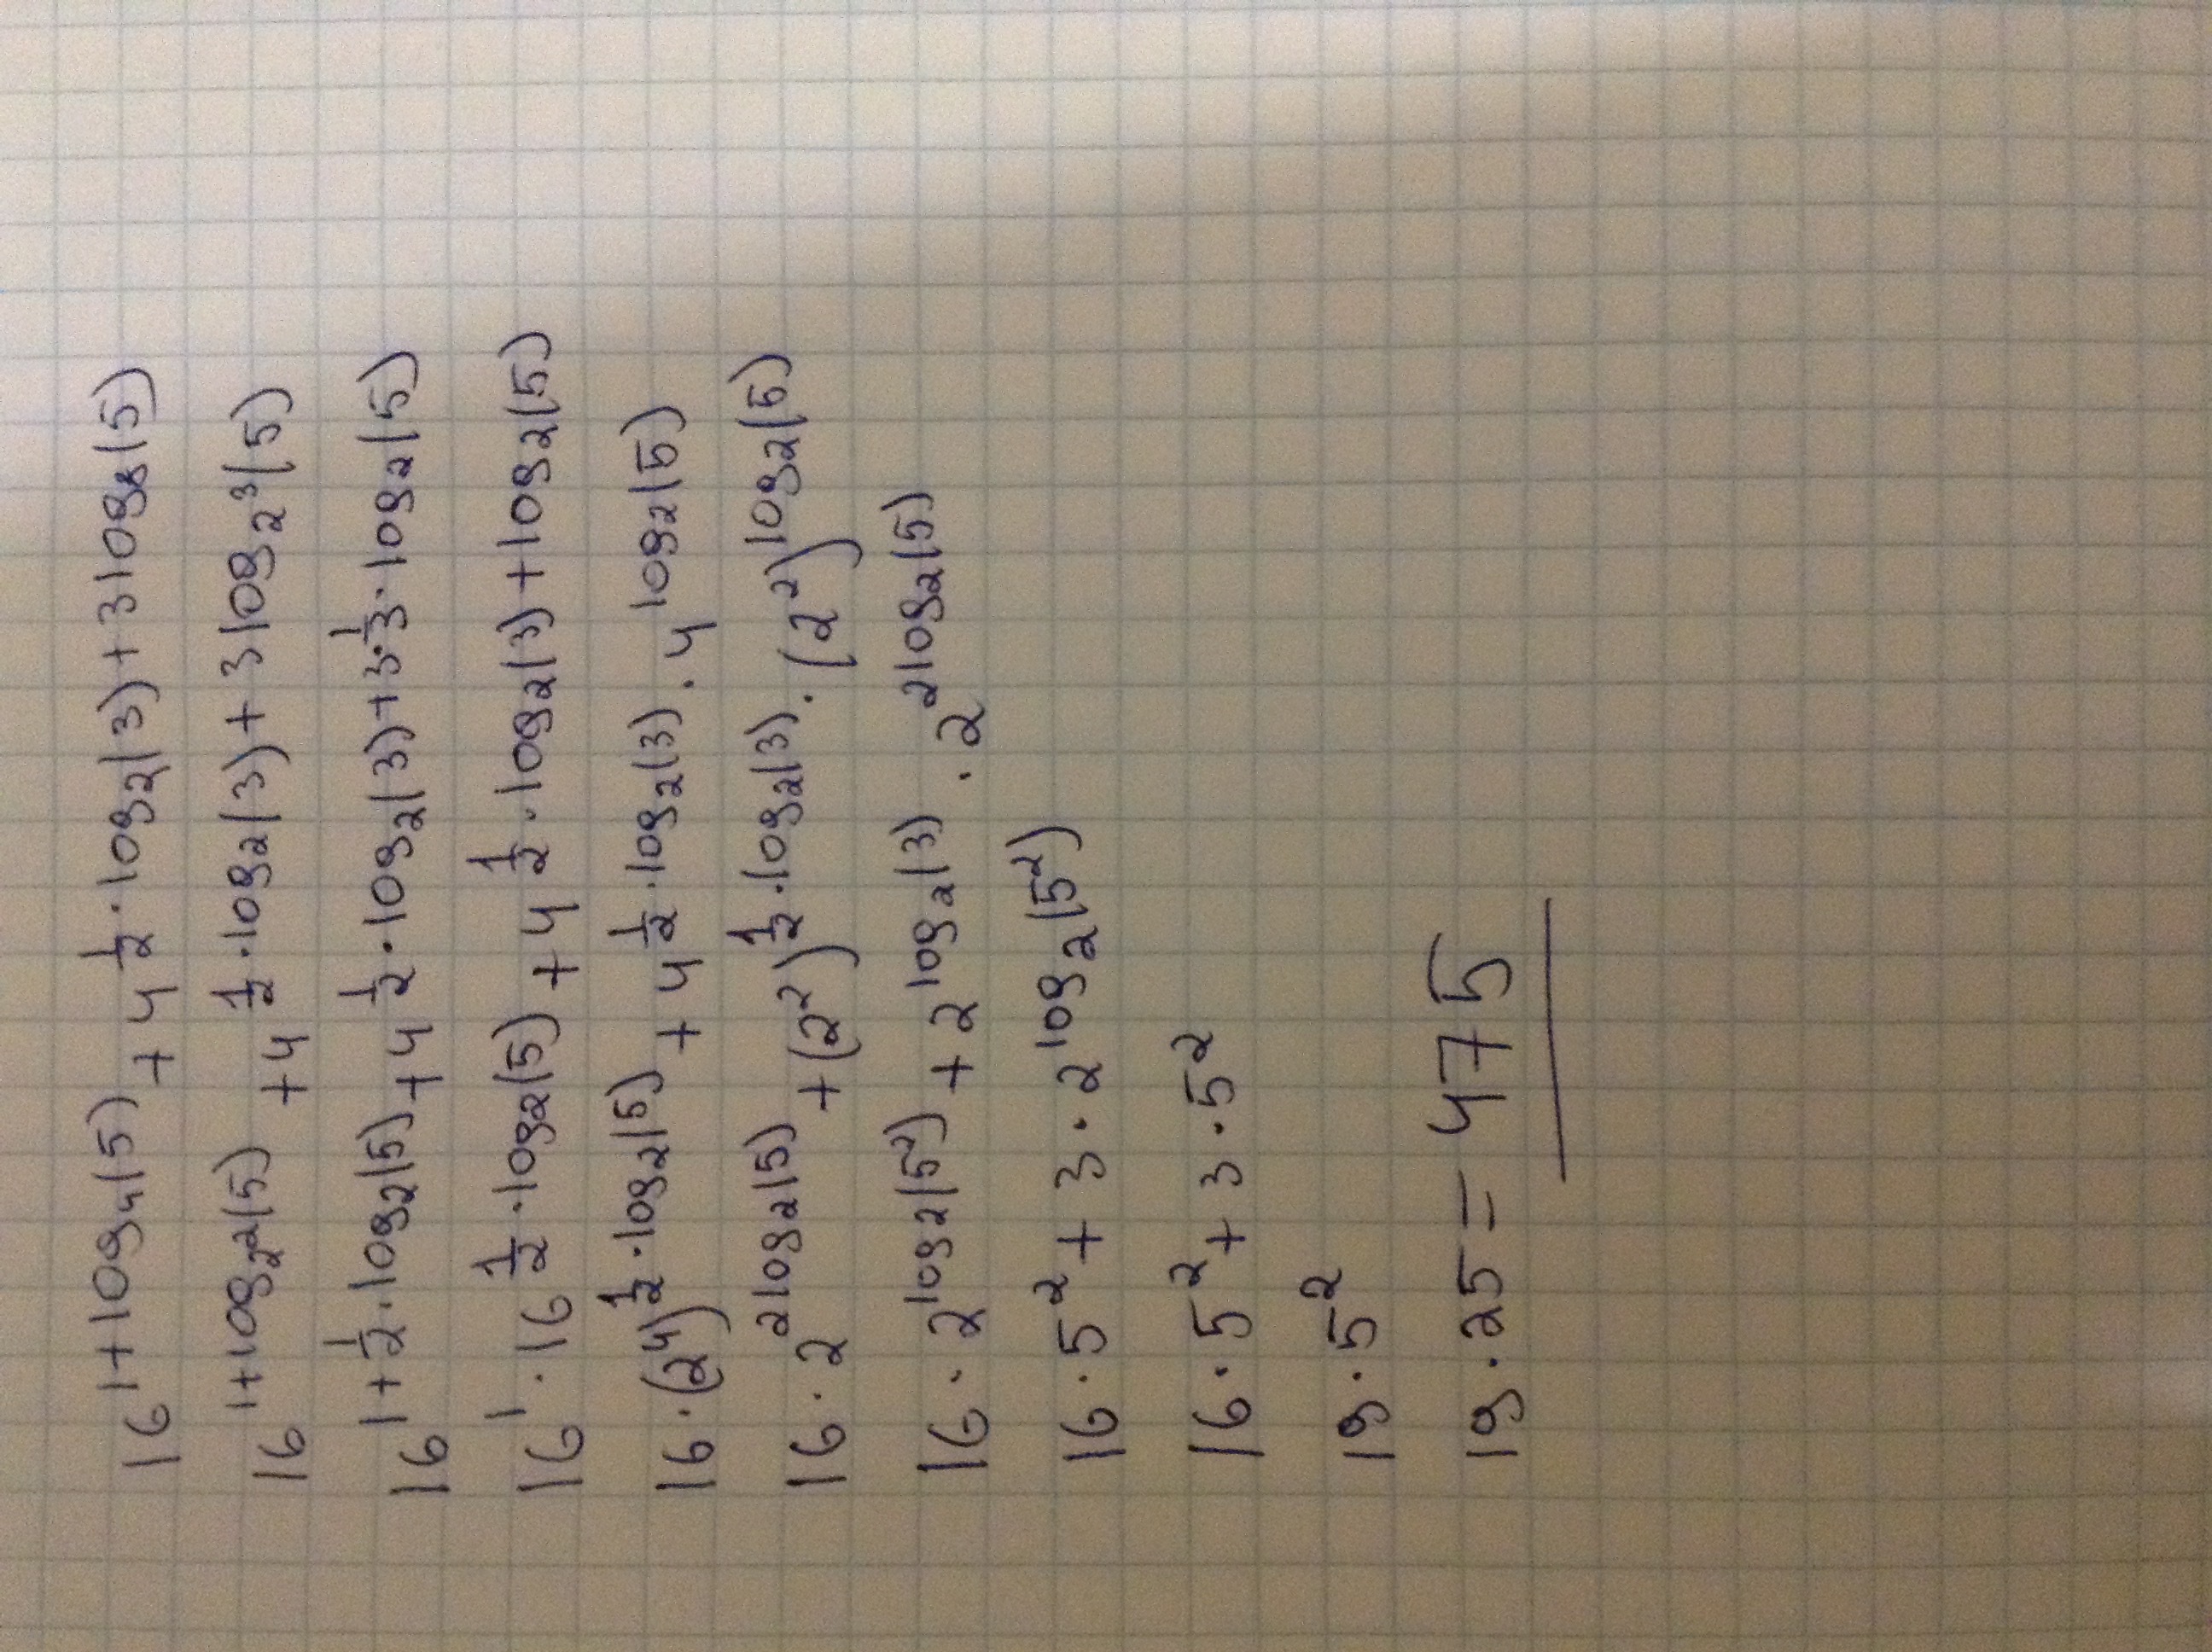 16^(1+log₄(5)) + 4^(1/2·log₂(3)+3log₈(5))
16^(1+log₂²(5)) + 4^(1/2·log₂(3)+3log₂³(5))
16^(1+1/2·log₂(5)) + 4^(1/2·log₂(3)+3·1/3·log₂(5))
16¹·16^(1/2·log₂(5)) + 4^(1/2·log₂(3)+log₂(5))
16·(2⁴)^(1/2·log₂(5)) + 4^(1/2·log₂(3))·4^(log₂(5))
16·2^(2log₂(5)) + (2²)^(1/2·log₂(3))·(2²)^(log₂(5))
16·2^(log₂(5²)) + 2^(log₂(3))·2^(2log₂(5))
16·5² + 3·2^(log₂(5²))
16·5² + 3·5²
19·5²
19·25 = 475